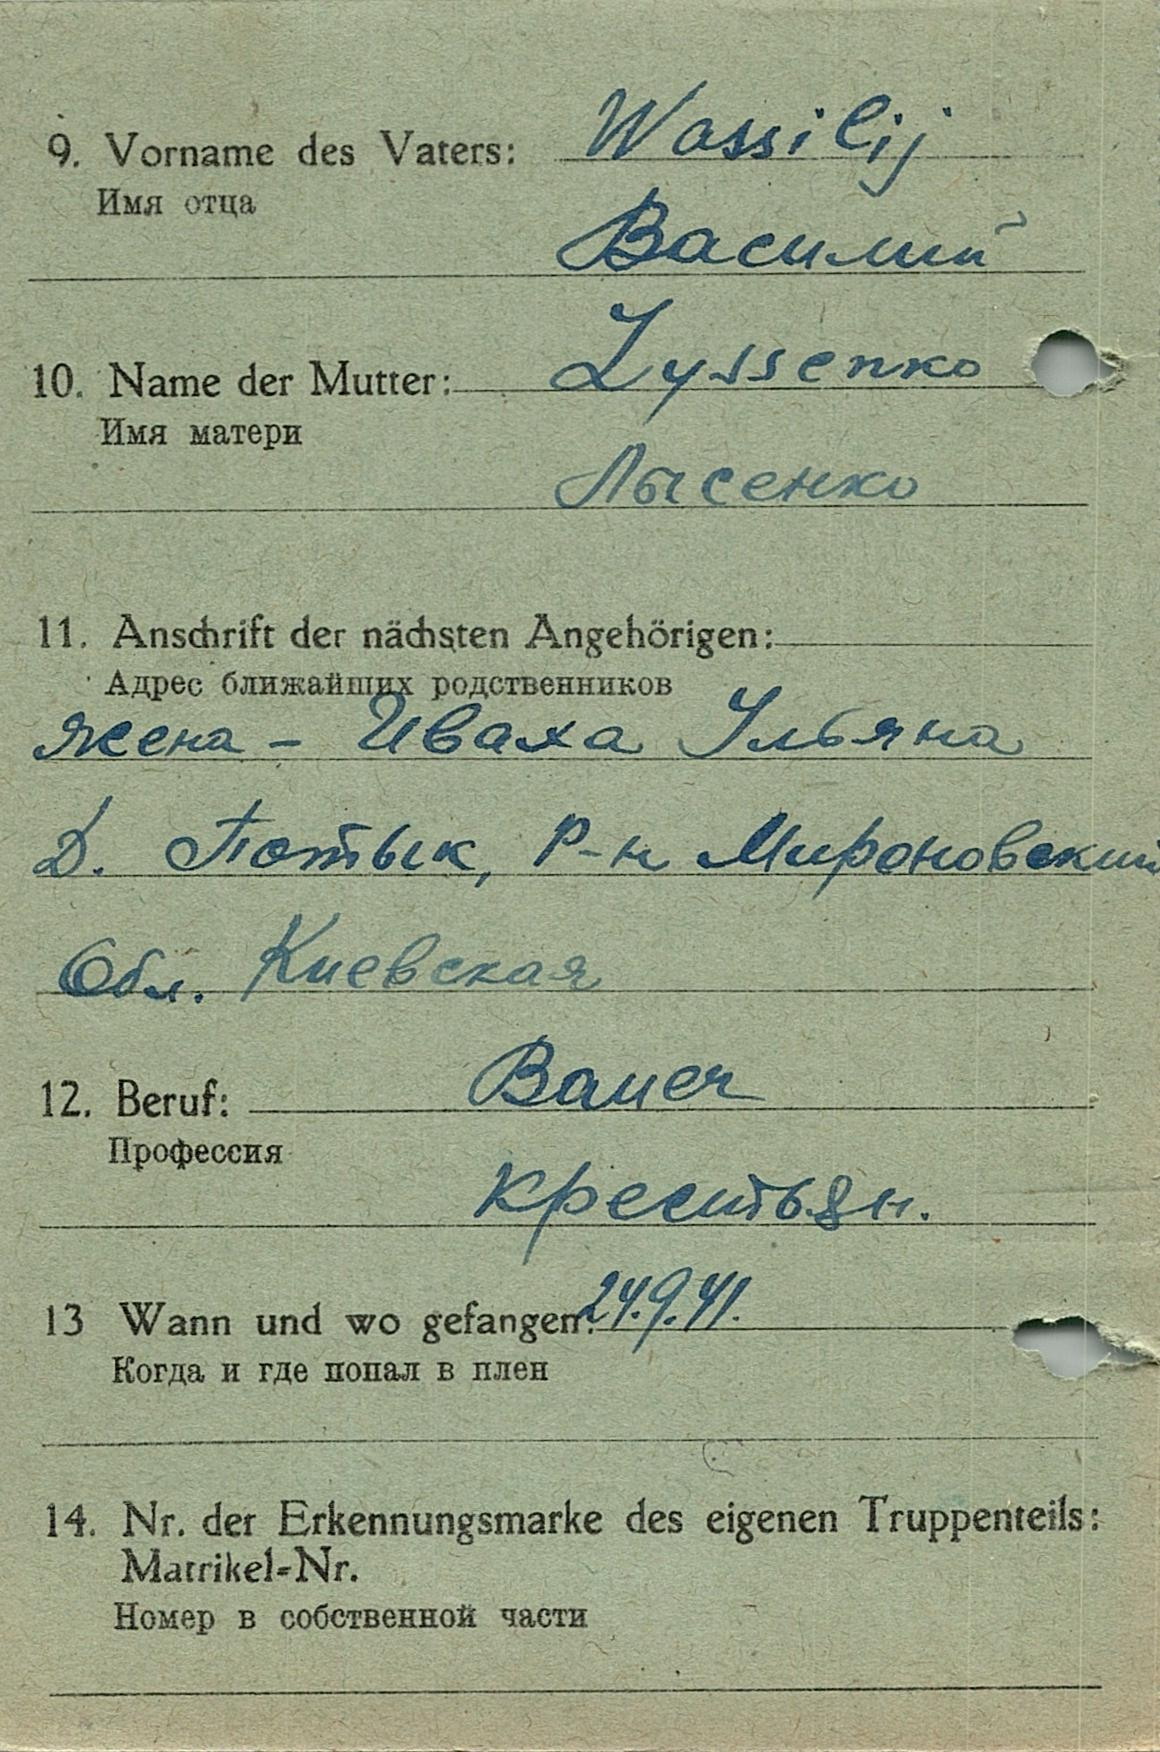 9. Vorname des Vaters: Wassilij
Имя отца
Василий
10. Name der Mutter: Lyssenko
Имя матери
Лысенко
11. Anschrift der nächsten Angehörigen:
Адрес ближайших родственников
жена - Иваха Ульяна
Д. Потык, Р-н Мироновский
Обл. Киевская
12. Beruf: Bauer
Профессия
крестьян.
13 Wann und wo gefangen: 24.9.41.
Когда и где попал в плен
14. Nr. der Erkennungsmarke des eigenen Truppenteils:
Matrikel-Nr.
Номер в собственной части